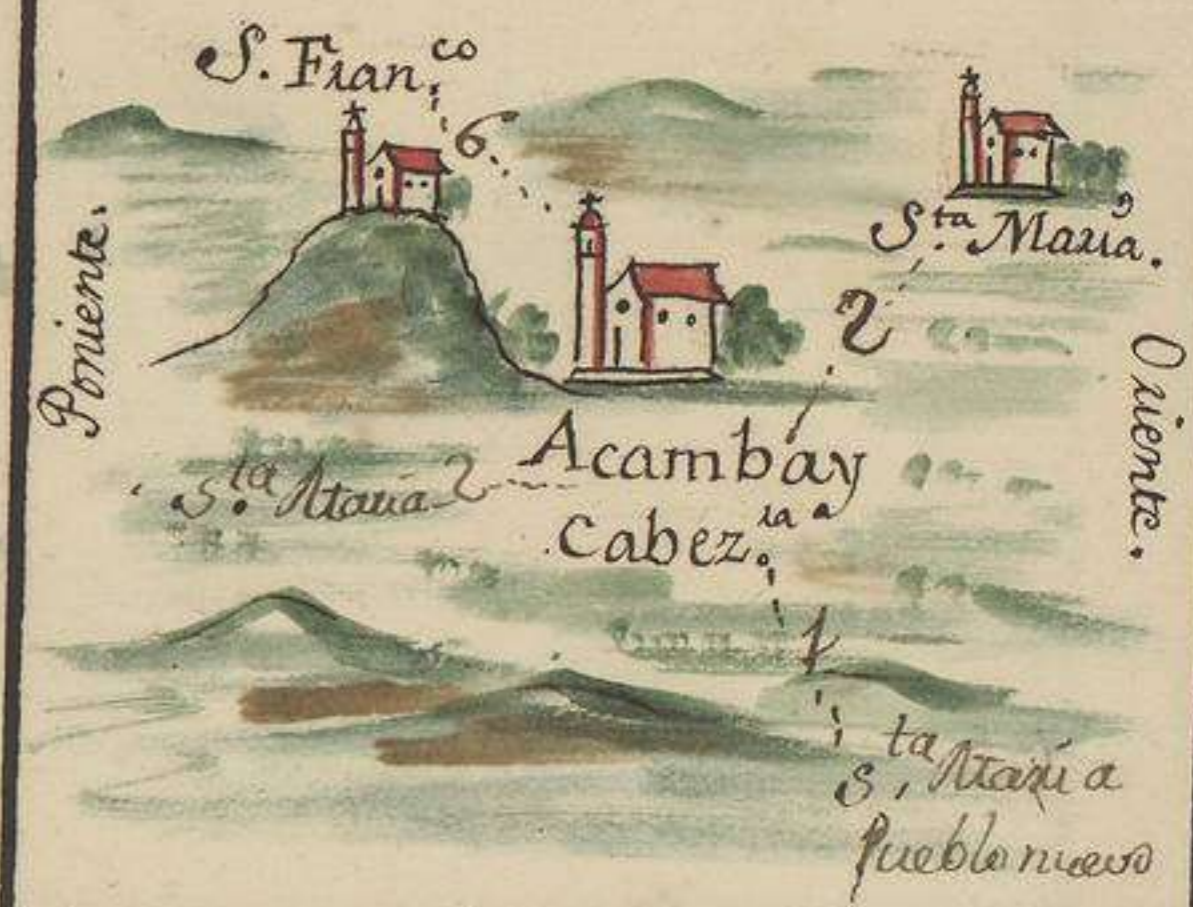 S. Fran.co
6
Sta Maria.
2
Poniente.
Oriente.
Acambay
Sta Maria 2
Cabez.ra
1
Sta Maria
Pueblo nuevo